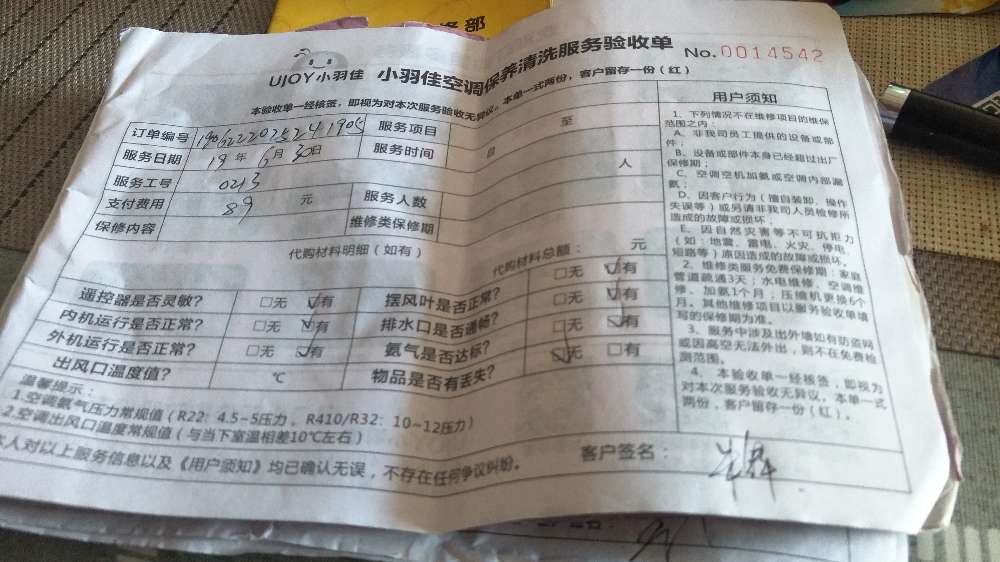 修部
UJOY小羽佳
小羽佳空调保养清洗服务验收单
No.0014542
本验收单一经核签，即视为对本次服务验收无异议。本单一式两份，客户留存一份（红）
订单编号
服务项目
服务日期 19年6月30日
服务时间 至
服务工号 0213
自
支付费用 89元
服务人数 人
保修内容
维修类保修期
代购材料明细（如有）
代购材料总额： 元
遥控器是否灵敏？ □无 ☑有
摆风叶是否正常？ □无 ☑有
内机运行是否正常？ □无 ☑有
排水口是否通畅？ □无 ☑有
外机运行是否正常？ □无 ☑有
氨气是否达标？ ☑无 □有
出风口温度值？ ℃
物品是否有丢失？
温馨提示：
1.空调氨气压力常规值（R22：4.5~5压力，R410/R32：10~12压力）
2.空调出风口温度常规值（与当下室温相差10℃左右）
本人对以上服务信息以及《用户须知》均已确认无误，不存在任何争议纠纷。
客户签名：
用户须知
1、下列情况不在维修项目的维保
范围之内：
A、非我司员工提供的设备或部
件；
B、设备或部件本身已经超过出厂
保修期；
C、空调空机加氨或空调内部漏
氨；
D、因客户行为（擅自装卸、操作
失误等）或另请非我司人员检修所
造成的故障或损坏；
E、因自然灾害等不可抗拒力
（如：地震、雷电、火灾、停电、
短路等）原因造成的故障或损坏。
2、维修类服务免费保修期：家庭
管道疏通3天；水电维修、空调维
修、加氨1个月；压缩机更换6个
月。其他维修项目以服务验收单填
写的保修期为准。
3、服务中涉及出外墙如有防盗网
或因高空无法外出，则不在免费检
测范围。
4、本验收单一经核签，即视为
对本次服务验收无异议。本单一式
两份，客户留存一份（红）。